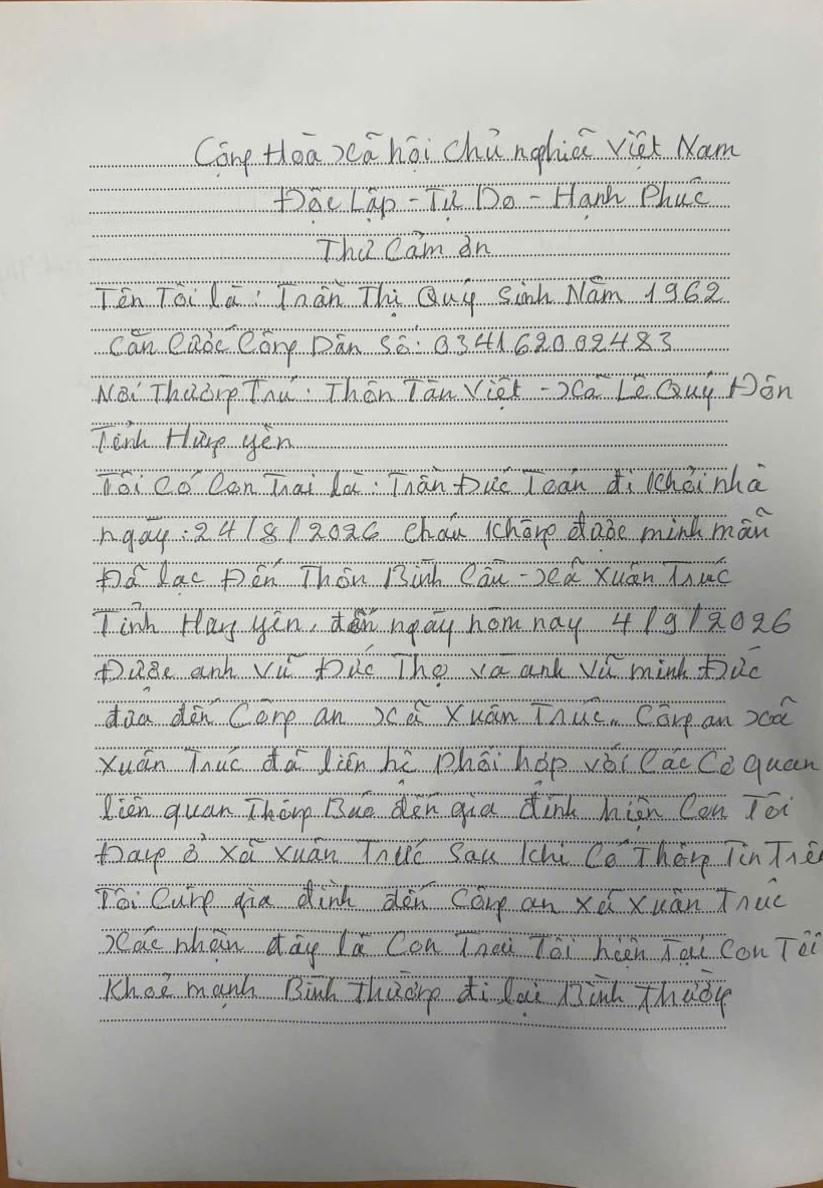 Cộng Hoà Xã hội Chủ nghiã Việt Nam
Độc Lập - Tự Do - Hạnh Phúc
Thư Cảm ơn
Tên Tôi là : Trần Thị Quý Sinh Năm 1962
Căn Cước Công Dân Số : 034162002483
Nơi Thường Trú : Thôn Tân Việt - Xã Lê Quý Đôn
Tỉnh Hưng yên
Tôi Có Con Trai là : Trần Đức Toán đi khỏi nhà
ngày : 24/8/2026 Cháu không được minh mẫn
Đã lạc Đến Thôn Bình Cầu - Xã Xuân Trúc
Tỉnh Hưng yên, đến ngày hôm nay 4/9/2026
Được anh Vũ Đức Thọ và anh Vũ minh Đức
đưa đến Công an xã Xuân Trúc. Công an xã
Xuân Trúc đã liên hệ Phối hợp với Các Cơ quan
liên quan Thông Báo đến gia đình hiện Con Tôi
Đang ở Xã Xuân Trúc Sau khi Có Thông Tin Trên
Tôi Cùng gia đình đến Công an xã Xuân Trúc
Xác nhận đây là Con Trai Tôi hiện Tại Con Tôi
Khoẻ mạnh Bình Thường đi lại Bình Thường